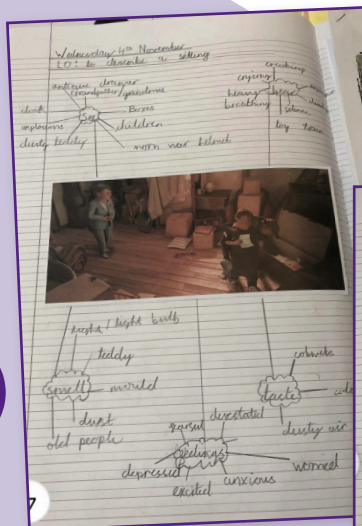 Wednesday 4th November
LO: to describe a setting
antique drawer
grandfather/grandma
clock
See
Boxes
children
dusty teddy
worn war helmet
creaking
crying
heavy
breathing
hear
silence
toy train
light / light bulb
teddy
smell
mould
dust
old people
cobwebs
taste
dusty air
devastated
feelings
worried
depressed
excited
anxious
7